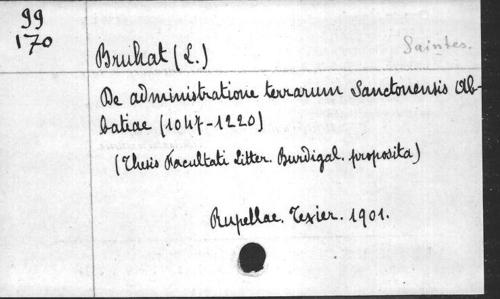 99
170
Bruhat (L.)
Saintes.
De administratione terrarum Sanctonensis Ab-
batiae (1047-1220)
(Thesis Facultati Litter. Burdigal. proposita)
Rupellae. Texier. 1901.